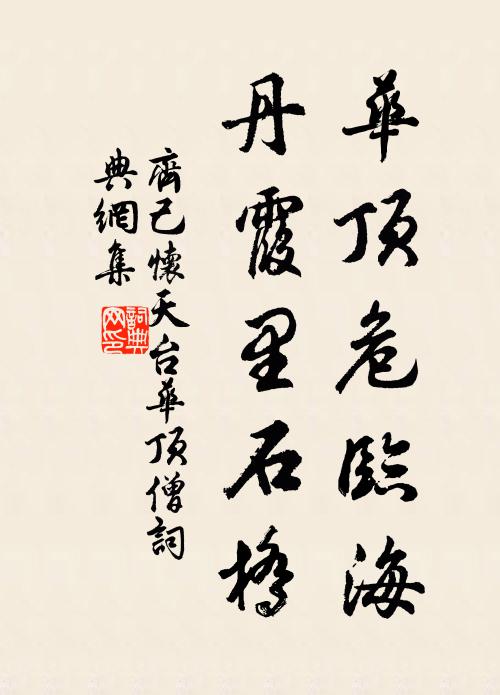 華頂危臨海
丹霞里石橋
齊己懷天台華頂僧詞
典網集
詞典
网印